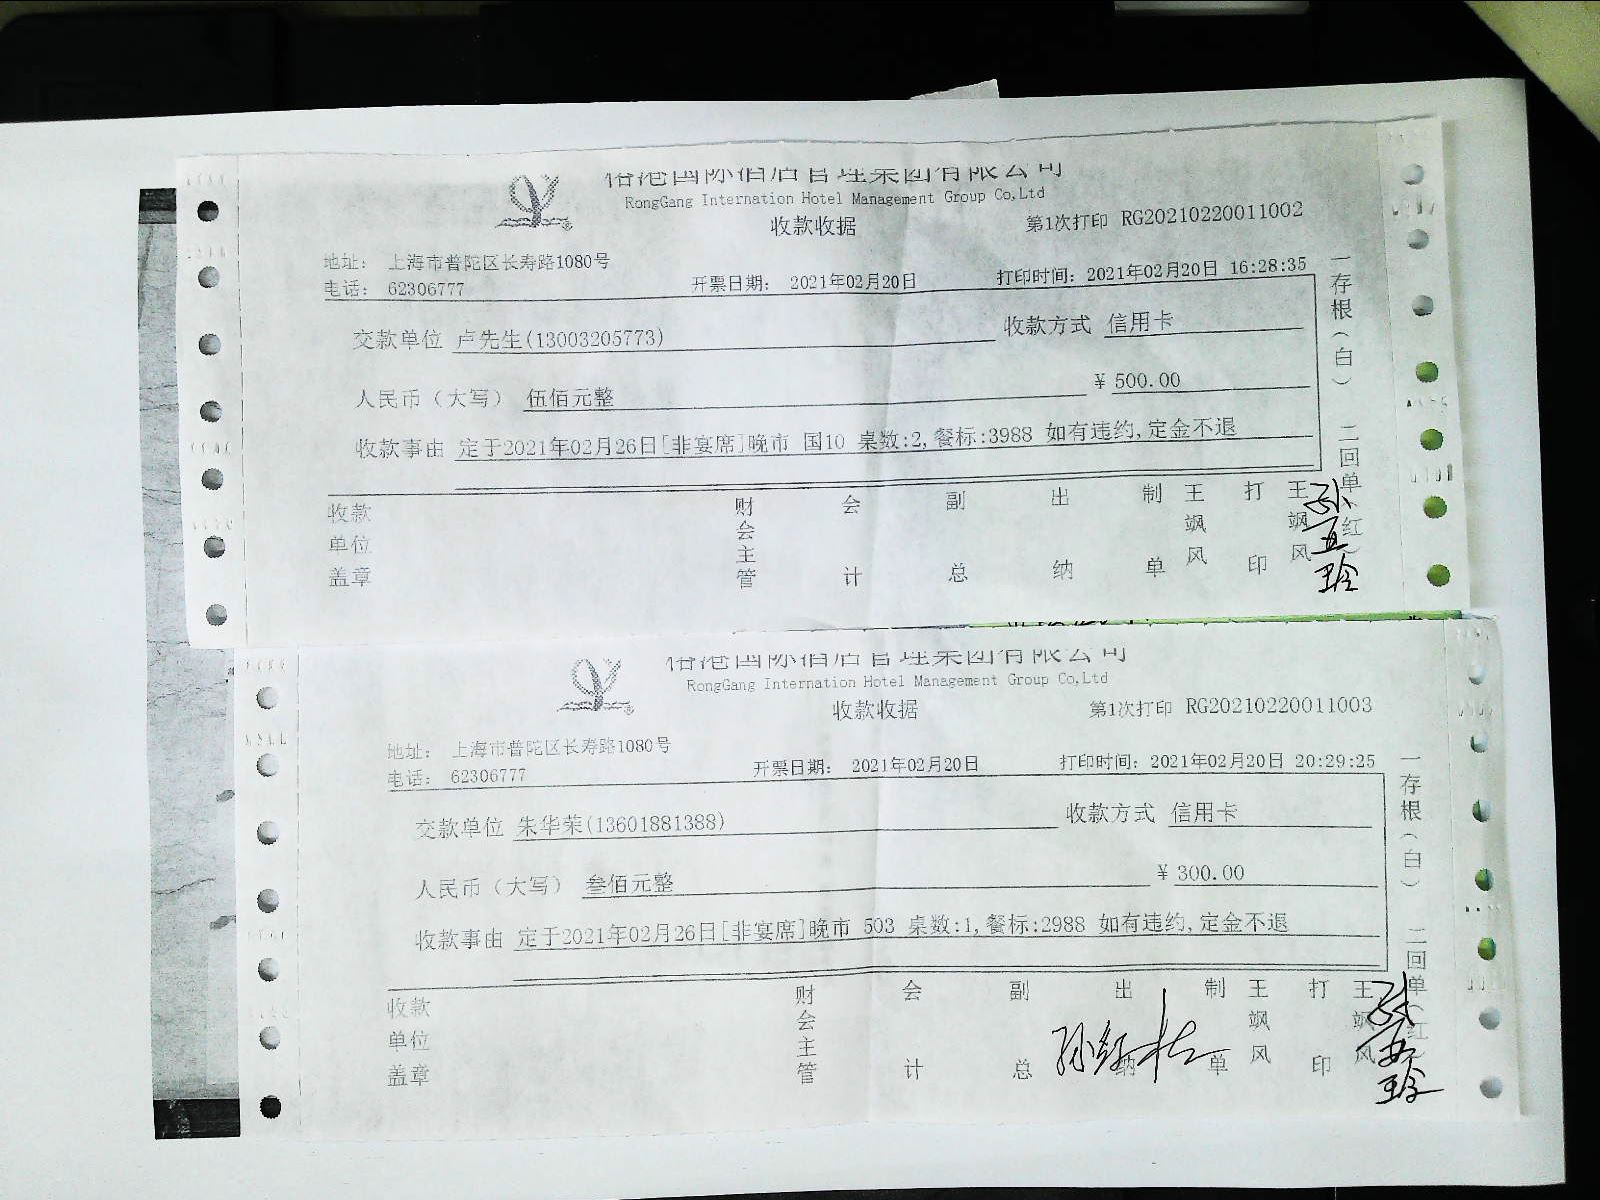 榕港国际酒店管理集团有限公司
RongGang Internation Hotel Management Group Co,Ltd
收款收据
第1次打印 RG20210220011002
地址: 上海市普陀区长寿路1080号
电话: 62306777
开票日期: 2021年02月20日
打印时间: 2021年02月20日 16:28:35
交款单位 卢先生(13003205773)
收款方式 信用卡
人民币(大写) 伍佰元整
¥ 500.00
收款事由 定于2021年02月26日[非宴席]晚市 国10 桌数:2,餐标:3988 如有违约,定金不退
收款单位盖章
财会主管
会计
副总
出纳
制单 王飒风
打印 王飒风
一存根(白) 二回单(红)
榕港国际酒店管理集团有限公司
RongGang Internation Hotel Management Group Co,Ltd
收款收据
第1次打印 RG20210220011003
地址: 上海市普陀区长寿路1080号
电话: 62306777
开票日期: 2021年02月20日
打印时间: 2021年02月20日 20:29:25
交款单位 朱华荣(13601881388)
收款方式 信用卡
人民币(大写) 叁佰元整
¥ 300.00
收款事由 定于2021年02月26日[非宴席]晚市 503 桌数:1,餐标:2988 如有违约,定金不退
收款单位盖章
财会主管
会计
副总
出纳
制单 王飒风
打印 王飒风
一存根(白) 二回单(红)